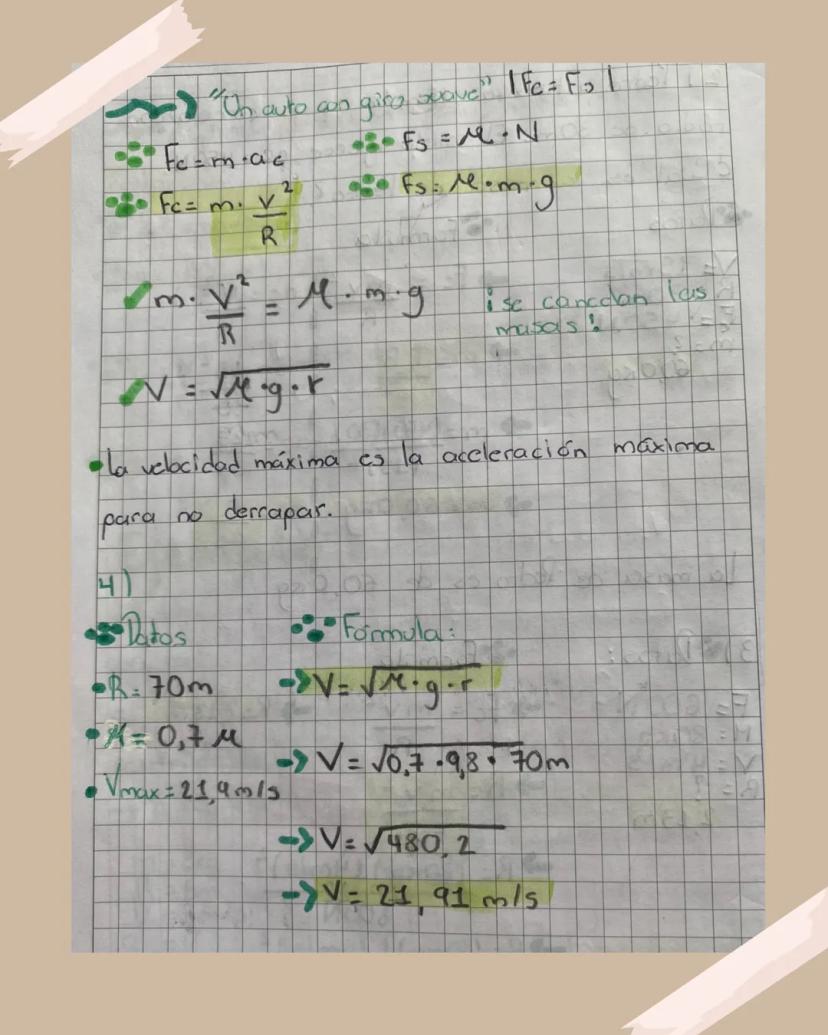 "Un auto con giro suave" |Fc = Fs|
Fc = m · ac
Fs = μ · N
Fc = m · V²/R
Fs = μ · m · g
m · V²/R = μ · m · g
¡se cancelan las
masas!
V = √μ · g · r
• la velocidad máxima es la acceleración máxima
para no derrapar.
4)
Datos
Fórmula:
• R = 70m
→ V = √μ · g · r
• μ = 0,7 μ
→ V = √0,7 · 9,8 · 70m
• Vmax = 21,9m/s
→ V = √480,2
→ V = 21,91 m/s